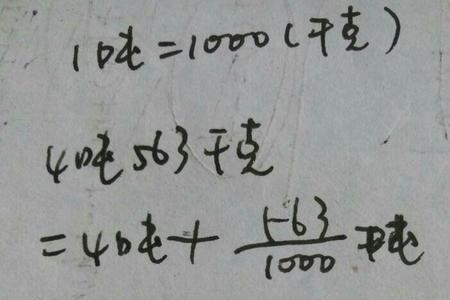 1吨=1000(千克)
4吨563千克
=4吨+563/1000吨